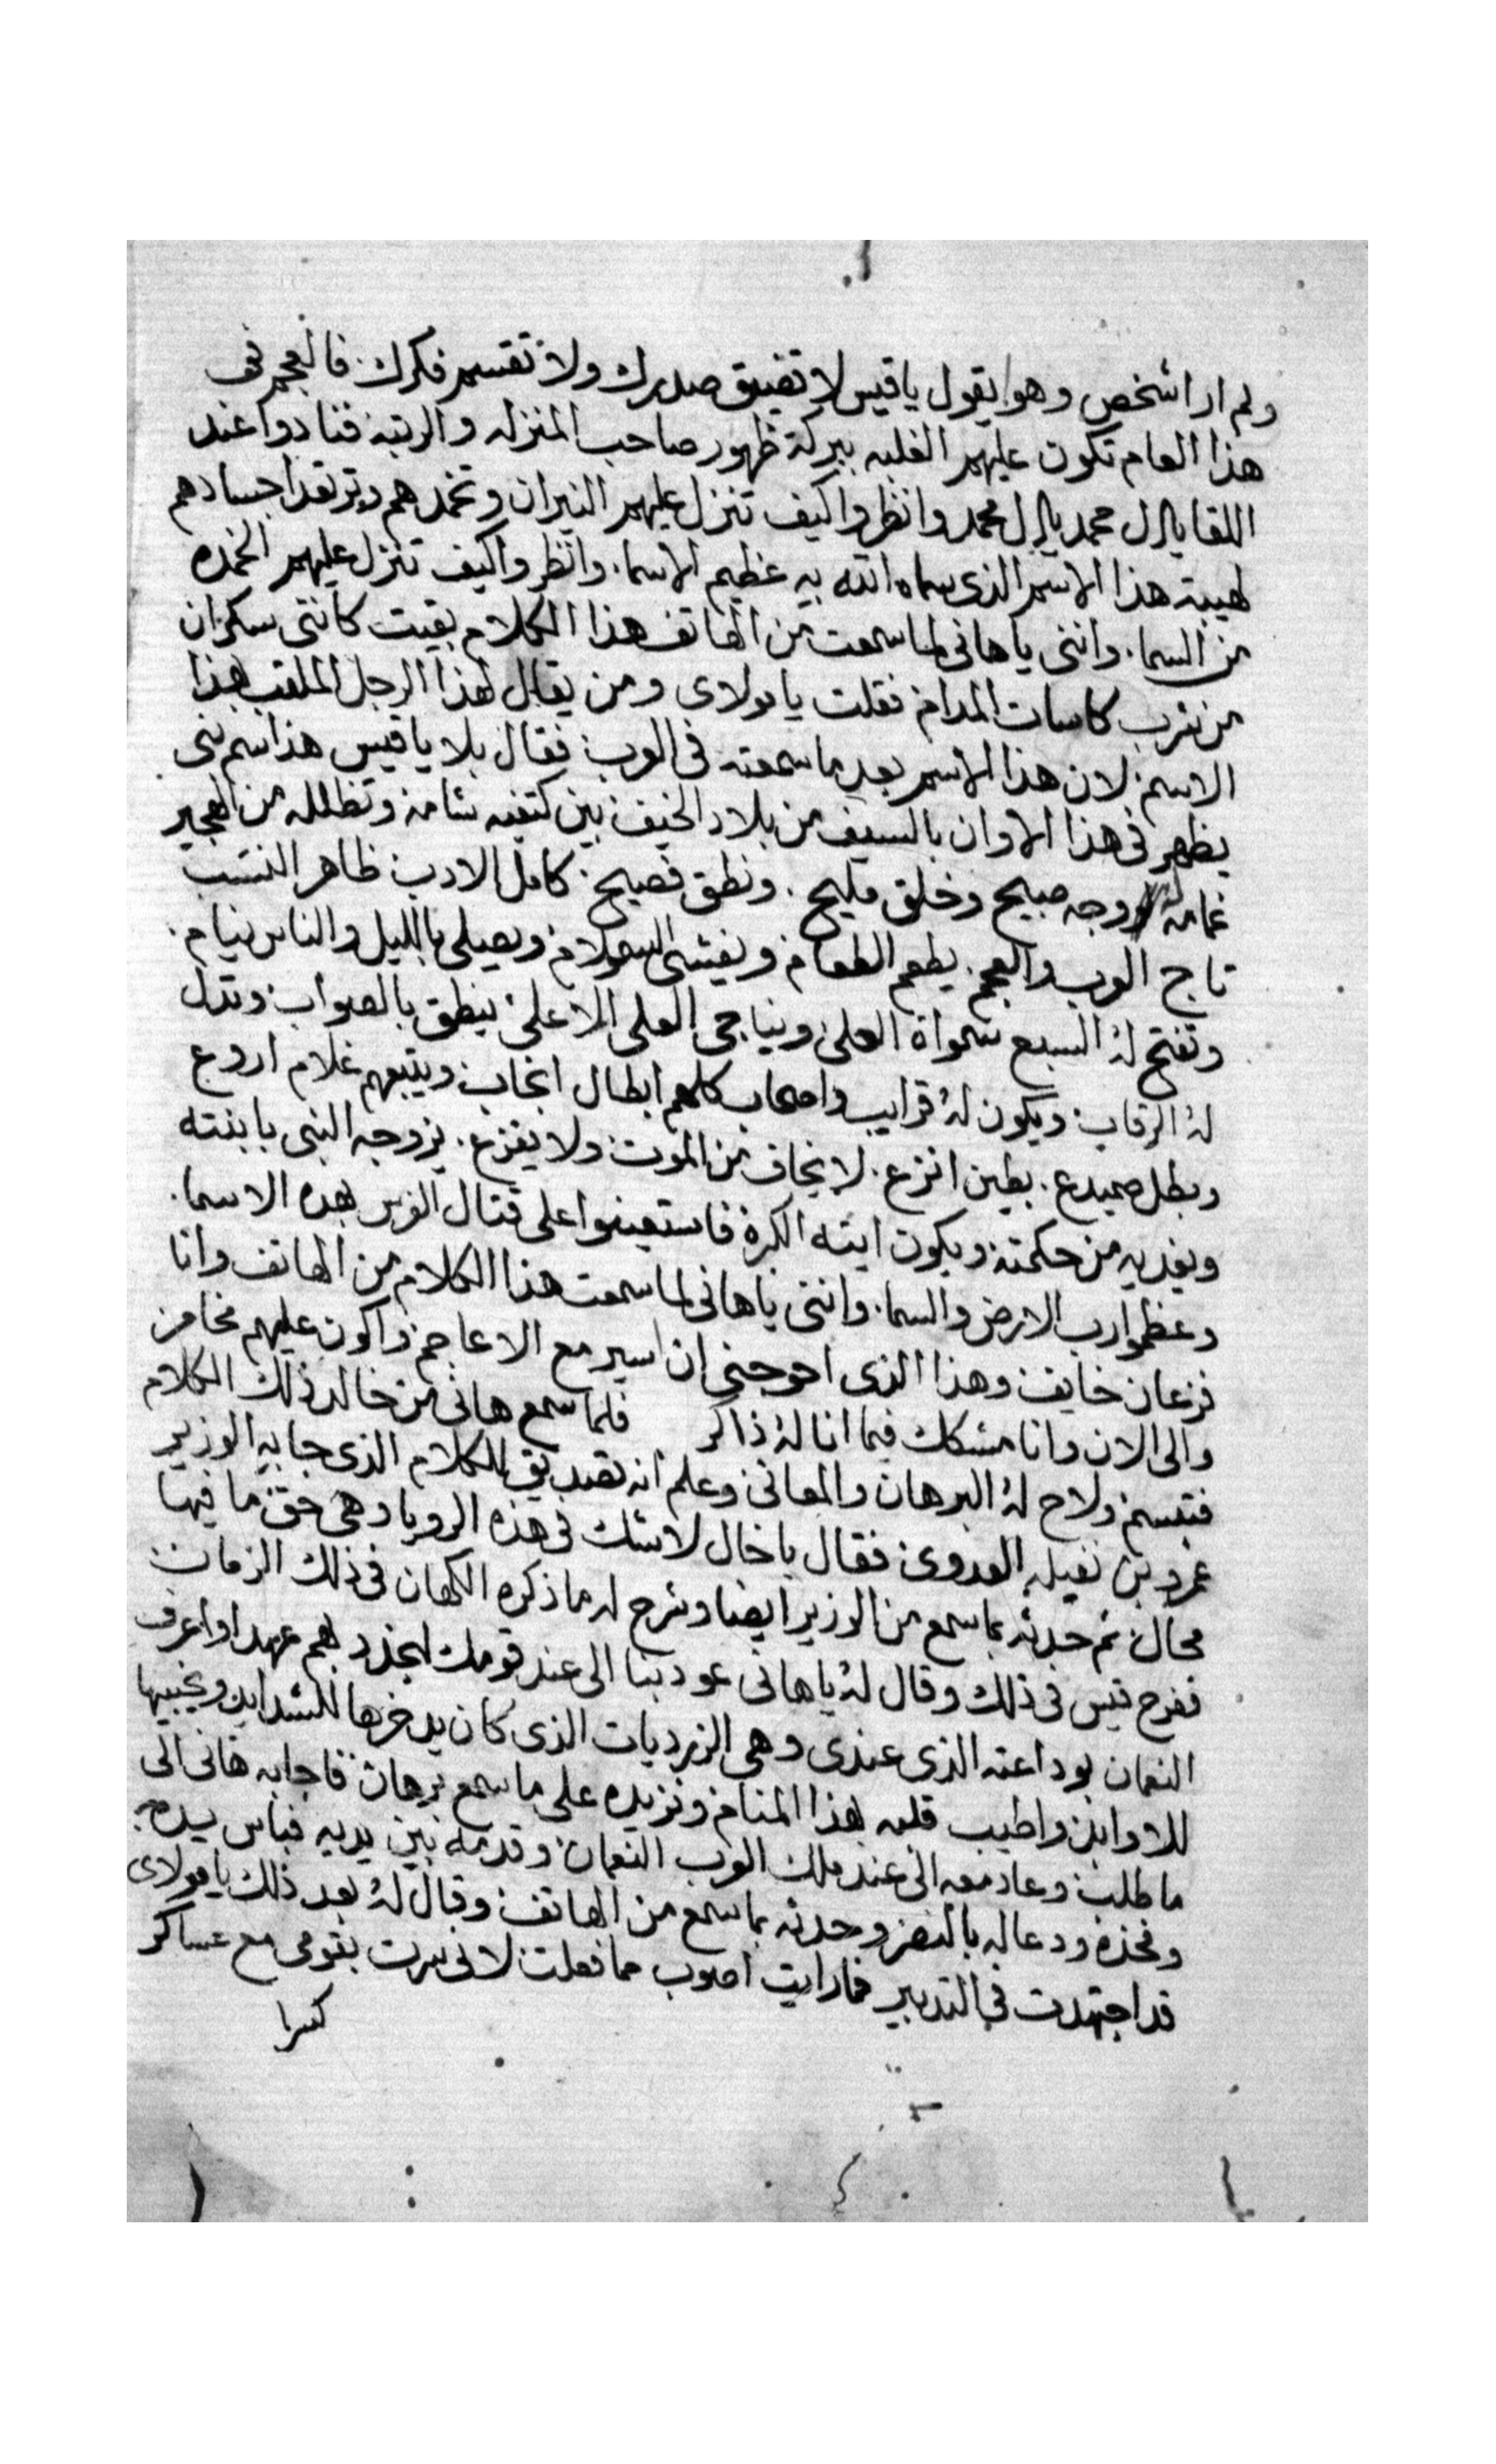 ولم ارا شخص وهو يقول ياقيس لا تضيق صدرك ولا تقسم فكرك فالعجم في
هذا العام تكون عليهم الغلبه ببركة ظهور صاحب المنزله والرتبه فنادوا عند
اللقا يال محمد يال محمد وانظروا كيف تنزل عليهم النيران وتخمدهم وترتعد اجسادهم
لهيبة هذا الاسم الذي سماه الله به عظيم الاسما وانظروا كيف تنزل عليهم الخمده
من السما وانني ياهاني لما سمعت من الهاتف هذا الكلام بقيت كانني سكران
من شرب كاسات المدام فقلت يا مولاي ومن يقال لهذا الرجل الملقب بهذا
الاسم لان هذا الاسم بعد ما سمعته في العرب فقال بلا ياقيس هذا اسم نبي
يظهر في هذا الاوان بالسيف من بلاد الخيف بين كتفيه شامه وتظلله من الهجير
غمامه له وجه صبيح وخلق مليح ونطق فصيح كامل الادب ظاهر النسب
تاج العرب والعجم يطعم الطعام ويفشي السلام ويصلي بالليل والناس نيام
وتفتح له السبع سمواة العلى ويناجي العلي الاعلى ينطق بالصواب وتذل
له الرقاب ويكون له قرايب واصحاب كلهم ابطال انجاب ويتبعهم غلام اروع
وبطل صميدع بطين انزع لا يخاف من الموت ولا يفزع يزوجه النبي بابنته
ويغديه من حكمته ويكون ايته الكبرة فاستعينوا على قتال الفرس بهذه الاسما
وعظموا رب الارض والسما وانني ياهاني لما سمعت هذا الكلام من الهاتف وانا
فزعان خايف وهذا الذي احوجني ان اسير مع الاعاجم واكون عليهم مخامر
والى الان وانا مشكك فيما انا له ذاكر فلما سمع هاني من خاله ذلك الكلام
فتبسم ولاح له البرهان والمعاني وعلم انه تصديق للكلام الذي جابه الوزير
عمرو بن نفيله العدوي فقال ياخال لاشك في هذه الرويا وهي حق ما فيها
محال ثم حدثه بما سمع من الوزير ايضا وشرح له ما ذكره الكهان في ذلك الزمان
ففرح قيس في ذلك وقال له ياهاني عود بنا الى عند قومك لنجدد بهم عهدا واعرف
النعمان بوداعته الذي عندي وهي الزرديات الذي كان يدخرها للشدايد ويخبيها
للاوابد واطيب قلبه بهذا المنام ونزيده على ما سمع برهان فاجابه هاني الى
ما طلب وعاد معه الى عند ملك العرب النعمان وقدمه بين يديه فباس يده
وفخذه ودعا له بالنصر وحدثه بما سمع من الهاتف وقال له بعد ذلك يا مولاي
قد اجتهدت في التدبير فما رايت اصوب مما فعلت لاني سرت بقومي مع عساكر
كسرا